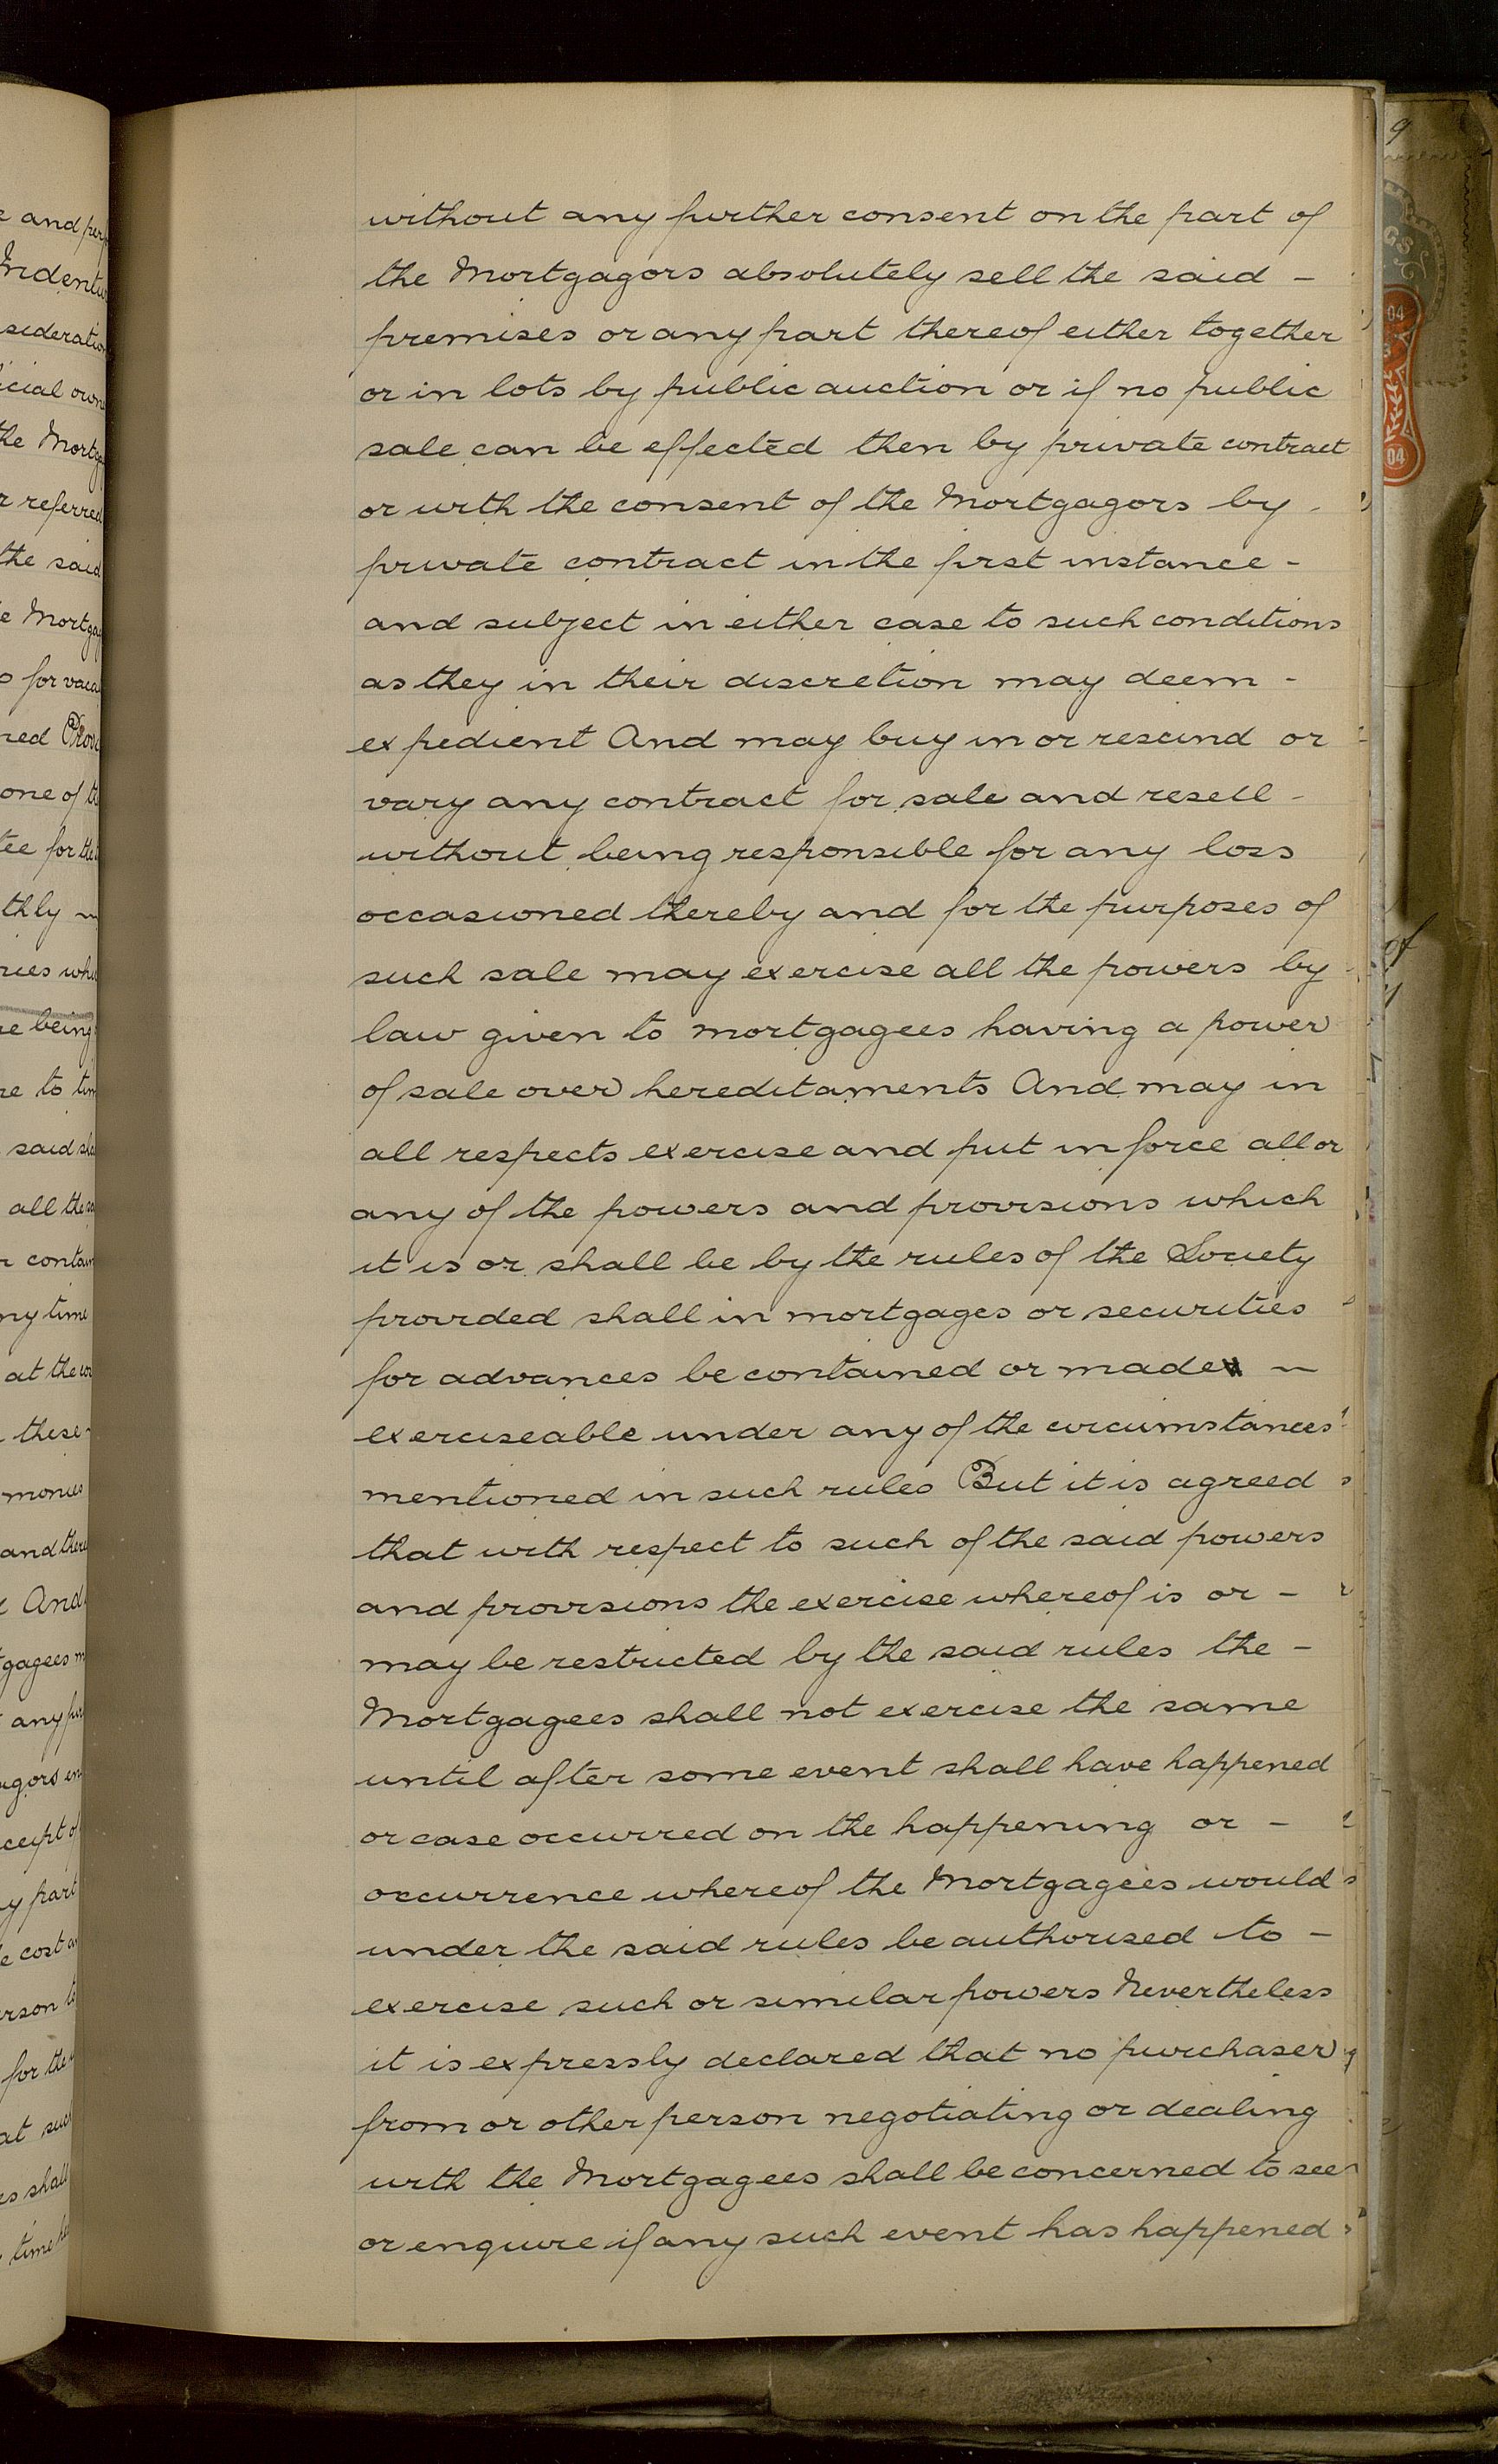 without any further consent on the part of
the Mortgagors absolutely sell the said -
premises or any part thereof either together
or in lots by public auction or if no public
sale can be effected then by private contract
or with the consent of the Mortgagors by
private contract in the first instance -
and subject in either case to such conditions
as they in their discretion may deem -
expedient And may buy in or rescind or
vary any contract for sale and resell -
without being responsible for any loss
occasioned thereby and for the purposes of
such sale may exercise all the powers by
law given to mortgagees having a power
of sale over hereditaments And may in
all respects exercise and put in force all or
any of the powers and provisions which
it is or shall be by the rules of the Society
provided shall in mortgages or securities
for advances be contained or made ~
exerciseable under any of the circumstances
mentioned in such rules But it is agreed
that with respect to such of the said powers
and provisions the exercise whereof is or -
may be restricted by the said rules the -
Mortgagees shall not exercise the same
until after some event shall have happened
or case occurred on the happening or -
occurrence whereof the Mortgagees would
under the said rules be authorised to -
exercise such or similar powers Nevertheless
it is expressly declared that no purchaser
from or other person negotiating or dealing
with the Mortgagees shall be concerned to see
or enquire if any such event has happened
9
04
04
of
and
the said
one of
thly ~
being
to
said
all the
time
at the
these
monies
and
And
any
part
cost
for the
at such
shall
time